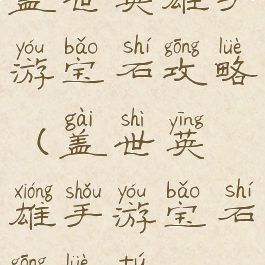 盖世英雄手
yóu bǎo shí gōng lüè
游宝石攻略
gài shì yīng
（盖世英
xióng shǒu yóu bǎo shí
雄手游宝石
gōng lüè